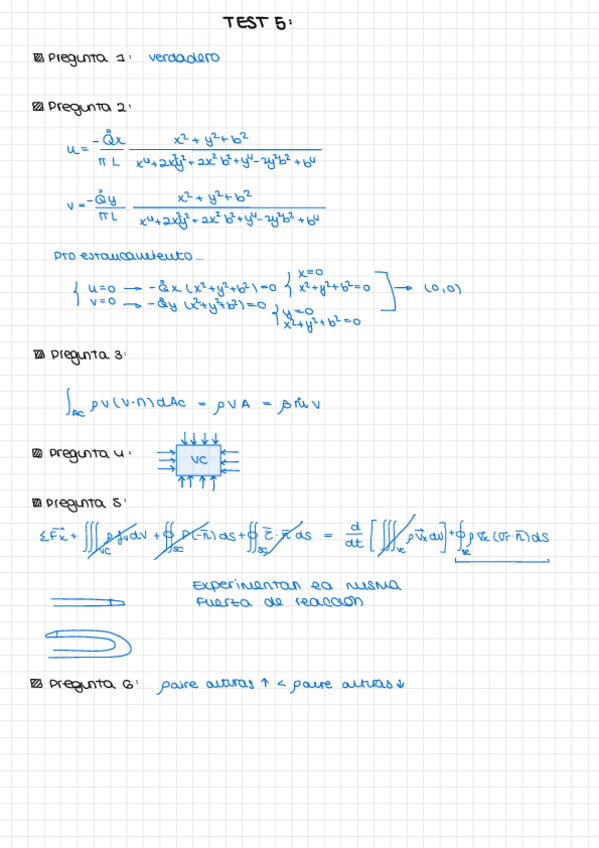 TEST 5:
Pregunta 1: verdadero
Pregunta 2:
u = -Q̊x / πL · (x² + y² + b²) / (x⁴ + 2x²y² + 2x²b² + y⁴ - 2y²b² + b⁴)
v = -Q̊y / πL · (x² + y² + b²) / (x⁴ + 2x²y² + 2x²b² + y⁴ - 2y²b² + b⁴)
Pto estancamiento...
{ u=0 → -Q̊x (x²+y²+b²)=0 { x=0 x²+y²+b²=0
v=0 → -Q̊y (x²+y²+b²)=0 { y=0 x²+y²+b²=0 ] → (0,0)
Pregunta 3:
∫AC ρV(V·n)dAc = ρVA = βṁV
Pregunta 4: VC
Pregunta 5:
ΣF⃗x + ∭VC ρ dV + ∯SC P(-n̄)ds + ∯SC τ̄·n̄ ds = d/dt [∭VC ρV⃗x dV] + ∮SC ρVx (Vr·n̄)ds
Experimentan la misma
fuerza de reacción
Pregunta 6: ρaire alturas ↑ < ρaire alturas ↓